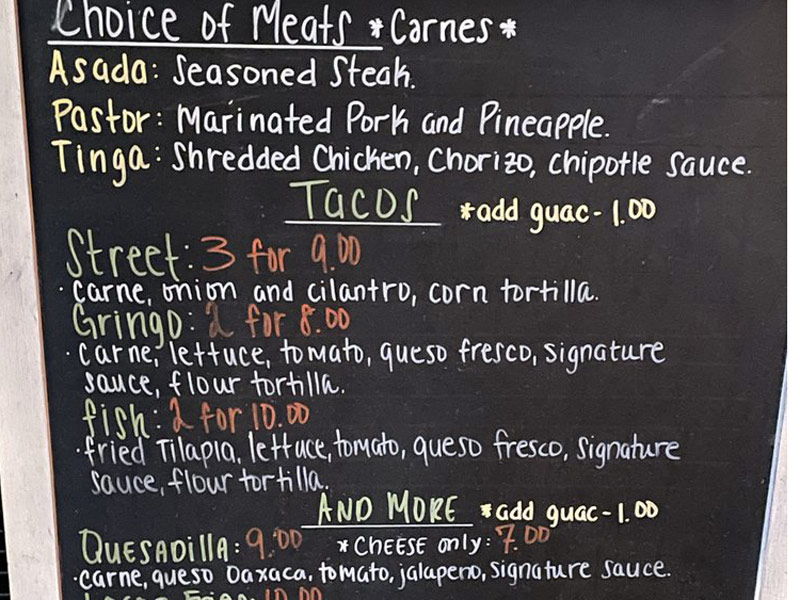 Choice of Meats *Carnes*
Asada: Seasoned Steak.
Pastor: Marinated Pork and Pineapple.
Tinga: Shredded Chicken, Chorizo, chipotle sauce.
TACOS *add guac - 1.00
Street: 3 for 9.00
· carne, onion and cilantro, corn tortilla.
Gringo: 2 for 8.00
· carne, lettuce, tomato, queso fresco, signature
sauce, flour tortilla.
fish: 2 for 10.00
· fried Tilapia, lettuce, tomato, queso fresco, signature
sauce, flour tortilla.
AND MORE *add guac - 1.00
QUESADILLA: 9.00 *CHEESE only: 7.00
· carne, queso Oaxaca, tomato, jalapeno, signature sauce.
10.00